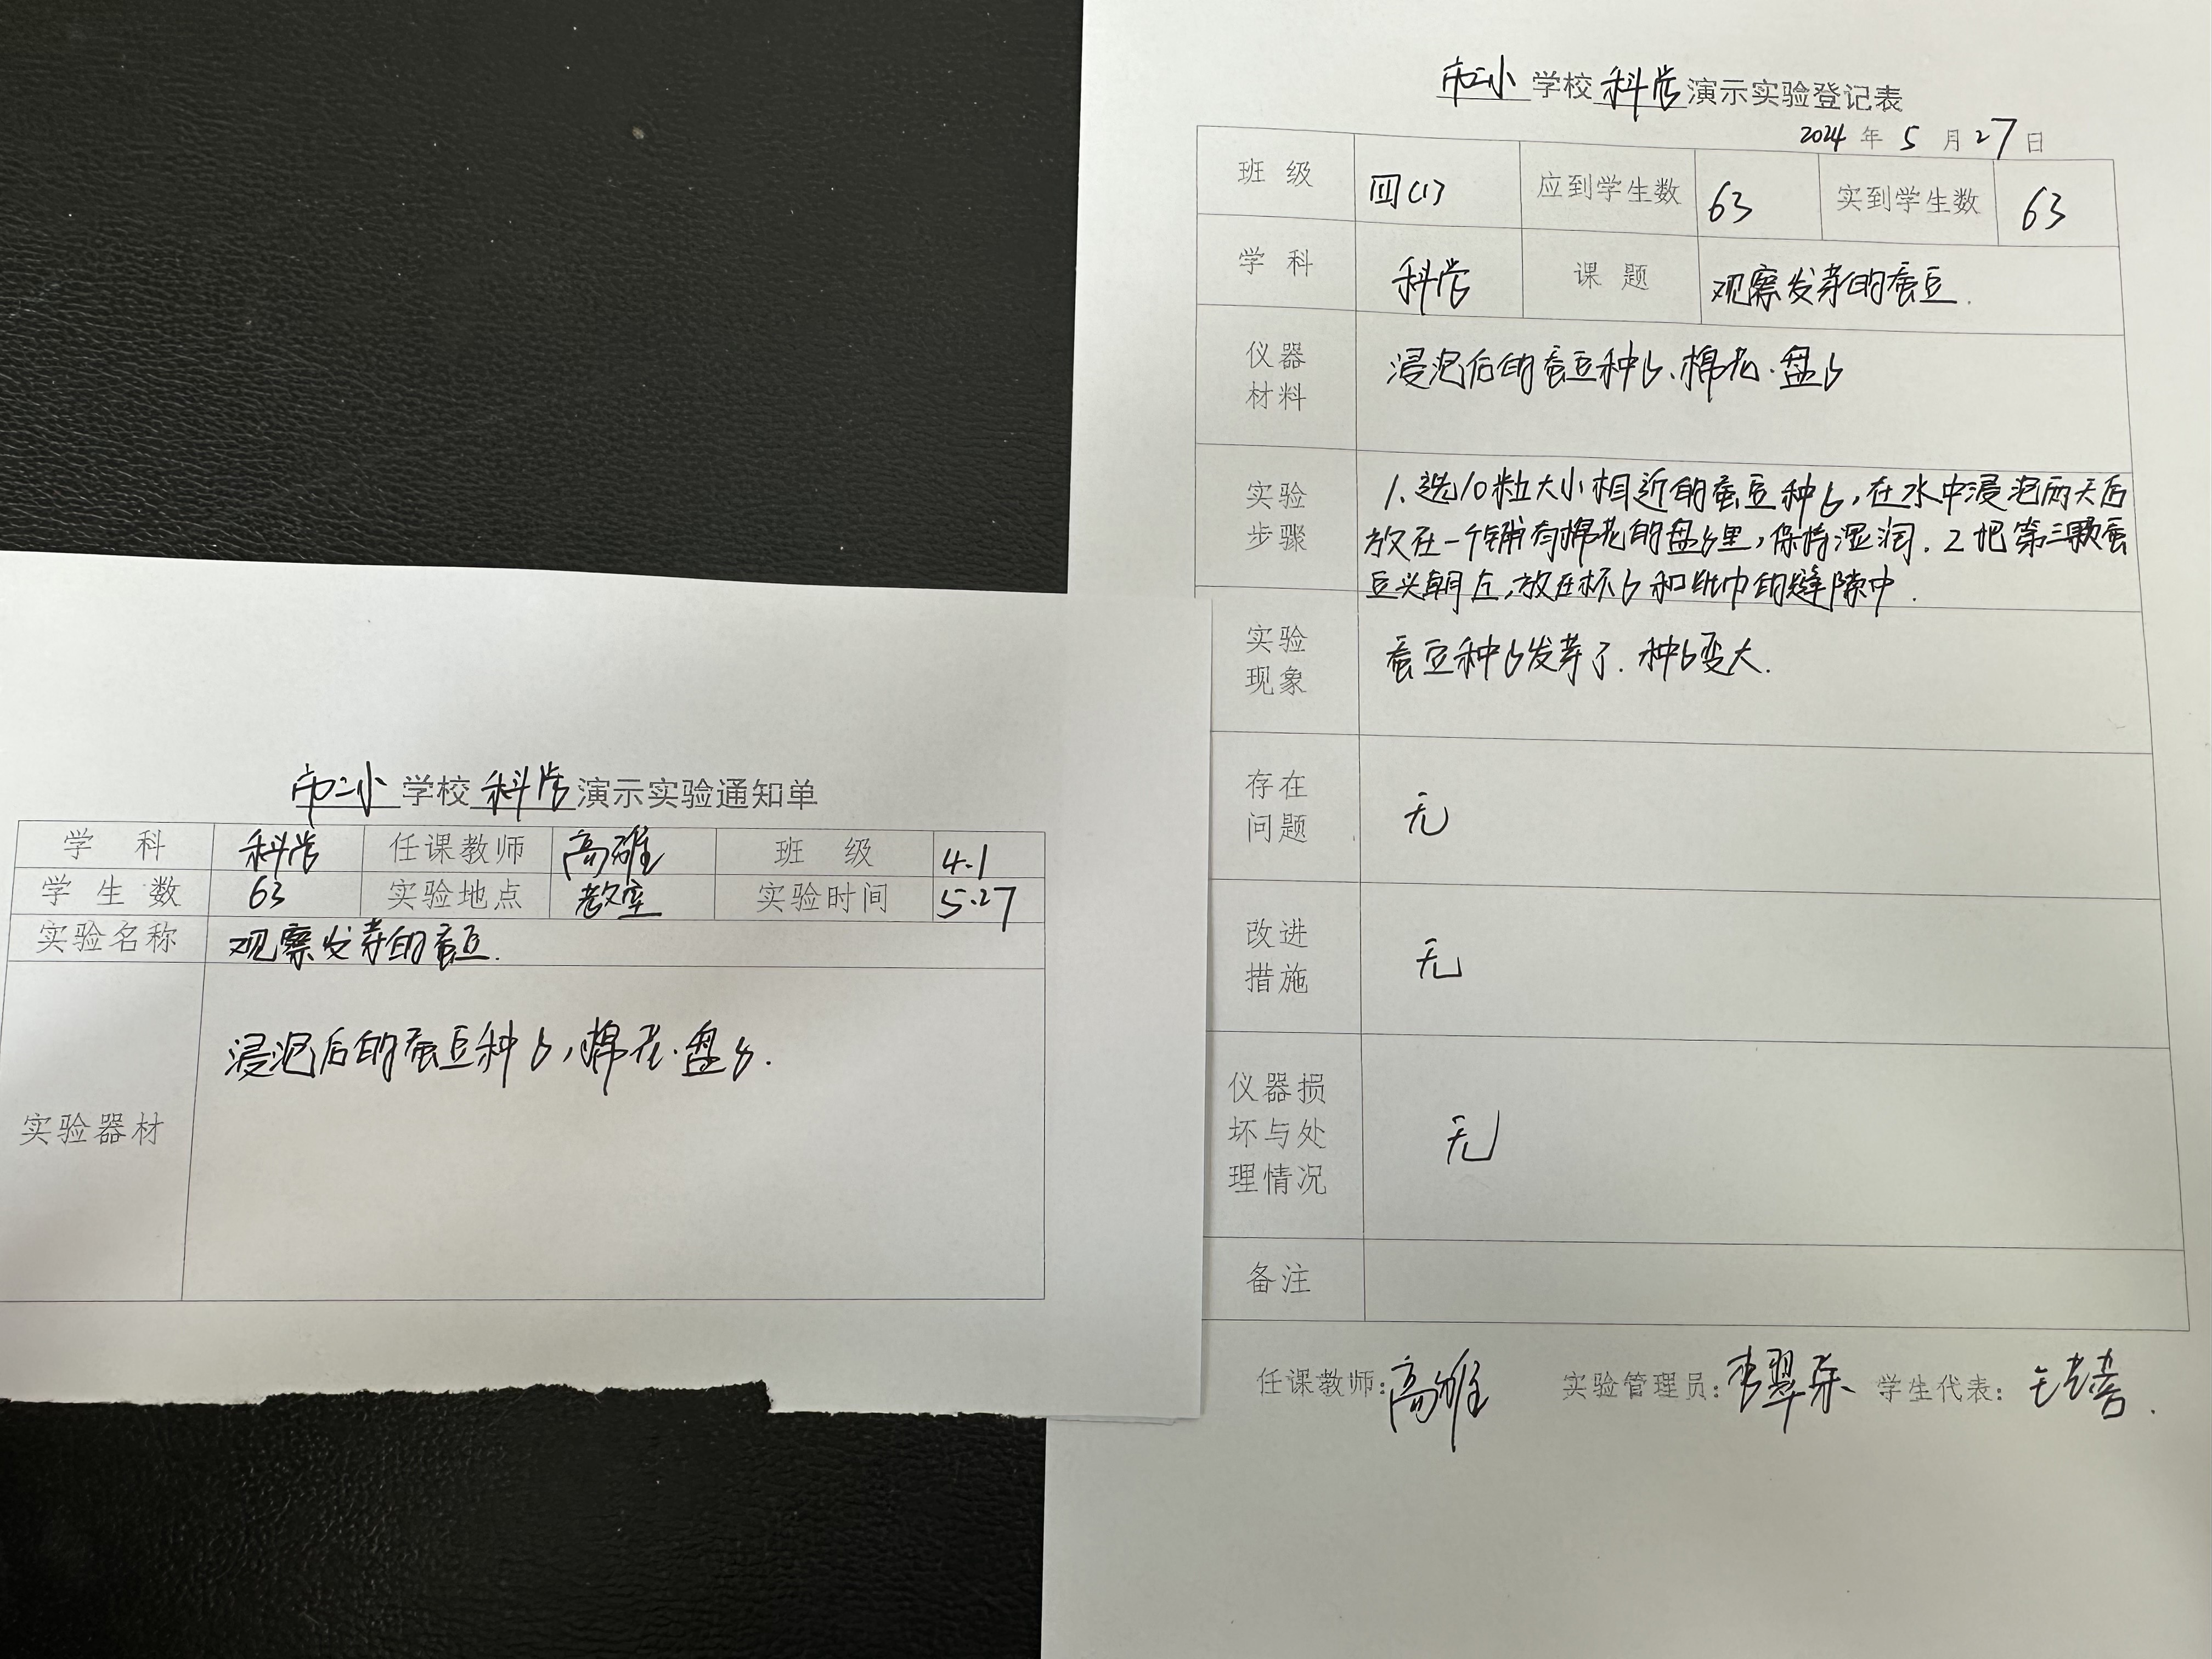 市二小学校科学演示实验登记表
2024年5月27日
班级 四(1) 应到学生数 63 实到学生数 63
学科 科学 课题 观察发芽的蚕豆.
仪器材料 浸泡后的蚕豆种子、棉花.盘子
实验步骤 1.选10粒大小相近的蚕豆种子,在水中浸泡两天后
放在一个铺有棉花的盘子里,保持湿润.2把第三颗蚕
豆头朝左,放在杯子和纸巾的缝隙中.
实验现象 蚕豆种子发芽了.种子变大.
存在问题 无
改进措施 无
仪器损坏与处理情况 无
备注
任课教师:高雄 实验管理员: 学生代表:
市二小学校科学演示实验通知单
学科 科学 任课教师 高雄 班级 4.1
学生数 63 实验地点 教室 实验时间 5.27
实验名称 观察发芽的蚕豆.
实验器材 浸泡后的蚕豆种子,棉花.盘子.